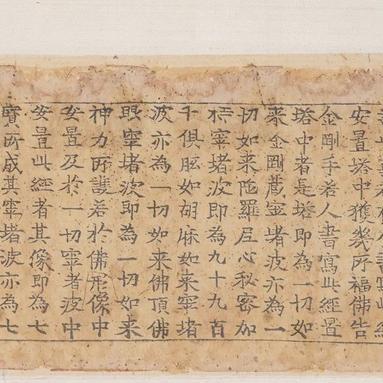 安置塔中獲幾所福佛告
金剛手若人書寫此經置
塔中者是塔即為一切如
來金剛藏窣堵波亦為一
切如來陁羅尼心秘密加
持窣堵波即為九十九百
千俱胝如胡麻如來窣堵
波亦為一切如來佛頂佛
眼窣堵波即為一切如來
神力所護若於佛形像中
安置及於一切窣堵波中
安置此經者其像即為七
寶所成其窣堵波亦為七